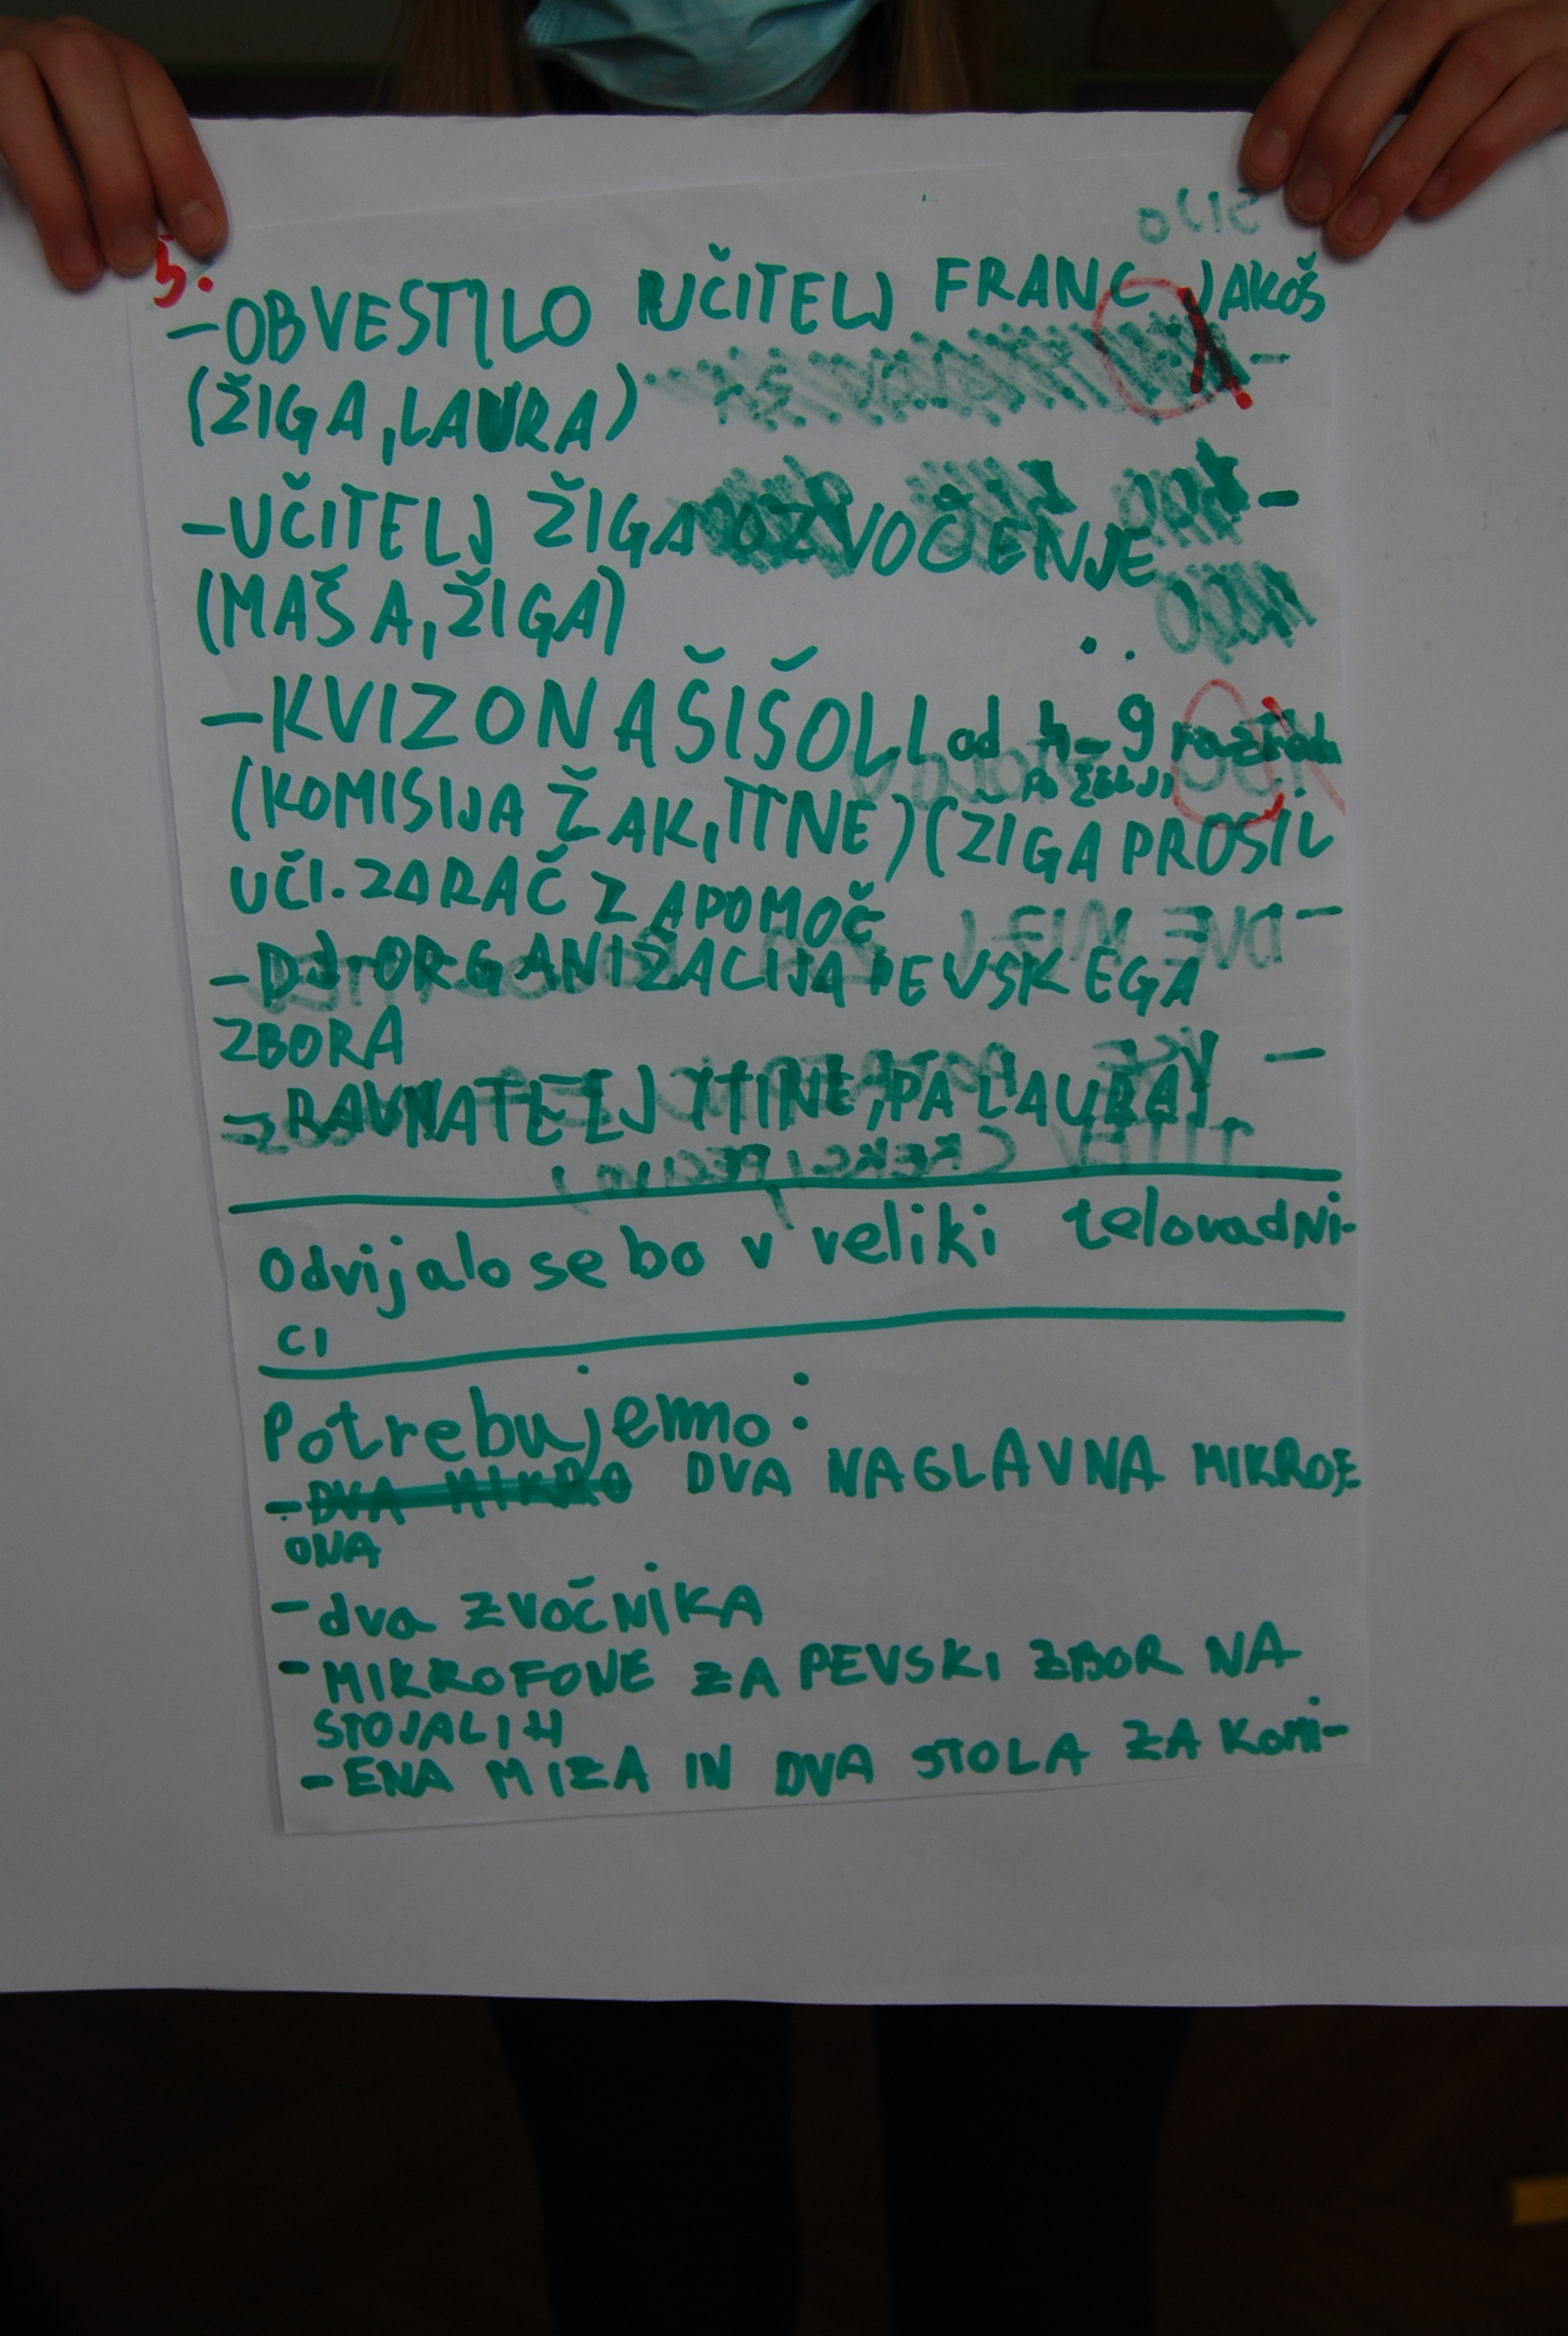 5.
-OBVESTILO UČITELJ FRANC JAKOŠ
(ŽIGA, LAURA)
-UČITELJ ŽIGA OZVOČENJE
(MAŠA, ŽIGA)
-KVIZ O NAŠI ŠOLI od 4-9 razreda
PO ŽELJI
(KOMISIJA ŽAK, TINE) (ŽIGA PROSIL
UČI. ZA RAČ ZA POMOČ
-DJ-ORGANIZACIJA PEVSKEGA
ZBORA
-RAVNATELJ (TINE, PA LAURA)
Odvijalo se bo v veliki telovadni-
ci
Potrebujemo:
-DVA MIKRO DVA NAGLAVNA MIKROF
ONA
-dva ZVOČNIKA
-MIKROFONE ZA PEVSKI ZBOR NA
STOJALIH
-ENA MIZA IN DVA STOLA ZA Komi-